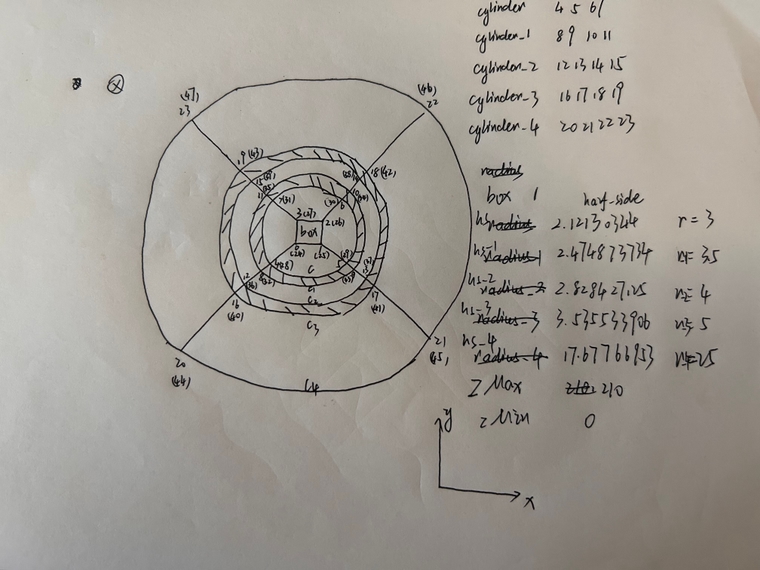 cylinder 4 5 6 7
cylinder_1 8 9 10 11
cylinder_2 12 13 14 15
cylinder_3 16 17 18 19
cylinder_4 20 21 22 23
radius
box 1 half-side
hs radius 2.12130344 r = 3
hs_1 radius_1 2.474873734 r1=3.5
hs_2 radius_2 2.828427125 r2= 4
hs_3 radius_3 3.535533906 r3= 5
hs_4 radius_4 17.67766953 r4=25
Z Max 210
z Min 0
y
x
(47)
23
(46)
22
19 (43)
18 (42)
7(31)
3(27)
2(26)
box
0
(24)
(25)
4(28)
5
16
(40)
17
(41)
20
(44)
21
(45)
C
C1
C2
C3
C4